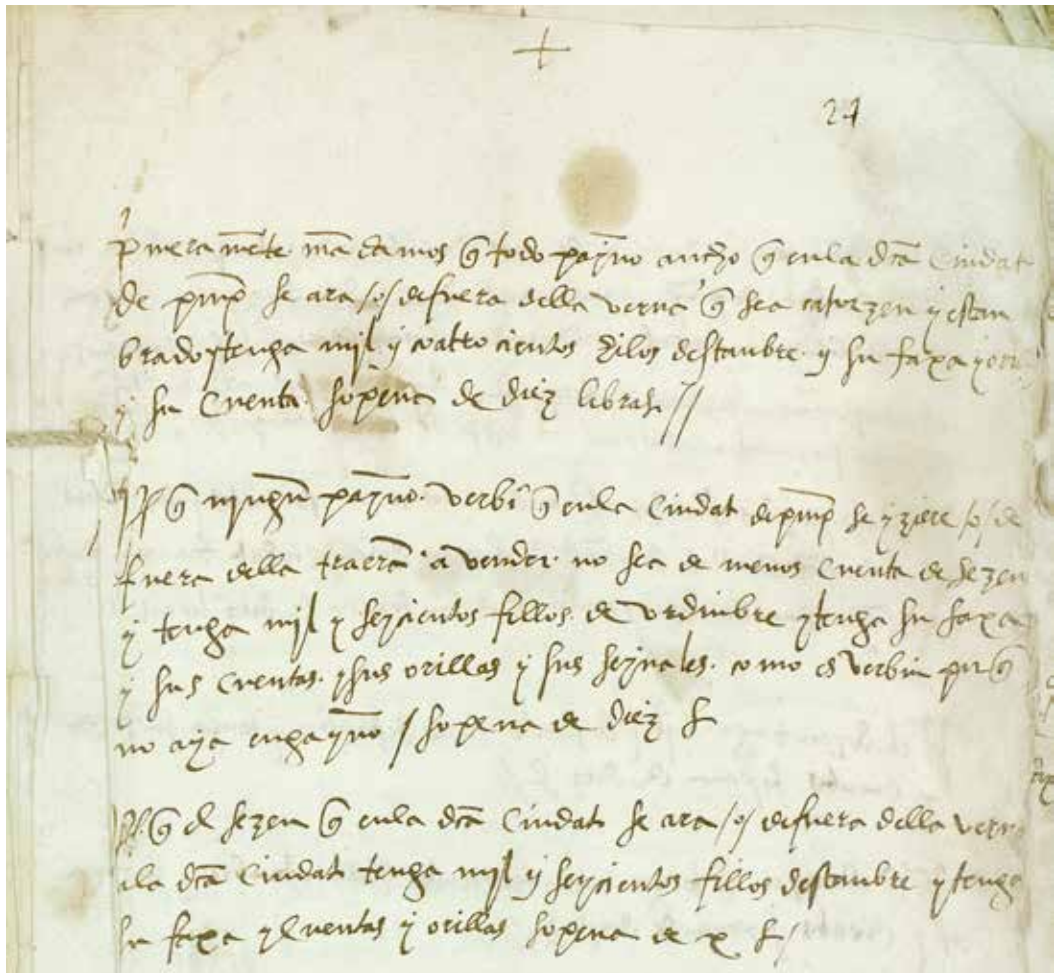 +
24
Primeramēte mādamos q̄ todo payno ancho q̄ enla dc̄a Ciudat
de pmp̄ se ara /o/ defuera della verna q̄ sea catorzen y estan
brado y tenga mjl y coatro cientos filos destanbre y su faxa y
y su Cuenta sopena de diez libras //
q̄ njngū payno verbj q̄ enla Ciudat de pmp̄ se yziere /o/ de
fuera della traerā a vender no sea de menos Cuenta de sezen
y tenga mjl y seycientos fillos de vrdinbre y tenga su faxa
y sus Cuentas y sus orillas y sus seynales como es verbin porq̄
no aya engayno / sopena de diez L
q̄ el sezen q̄ enla dc̄a Ciudat se ara /o/ defuera della verna
ala dc̄a Ciudat tenga mjl y seycientos fillos destanbre y tenga
su faxa y Cuentas y orillas sopena de x L /